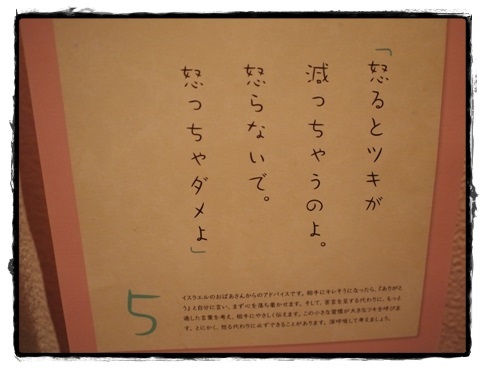 「怒るとツキが
減っちゃうのよ。
怒らないで。
怒っちゃダメよ」
5
イスラエルのおばあさんからのアドバイスです。相手にキレそうになったら、『ありがと
う』と自分に言い、まず心を落ち着かせます。そして、苦言を呈する代わりに、もっと
適した言葉を考え、相手にやさしく伝えます。この小さな習慣が大きなツキを呼びま
す。とにかく、怒る代わりに必ずできることがあります。深呼吸して考えましょう。